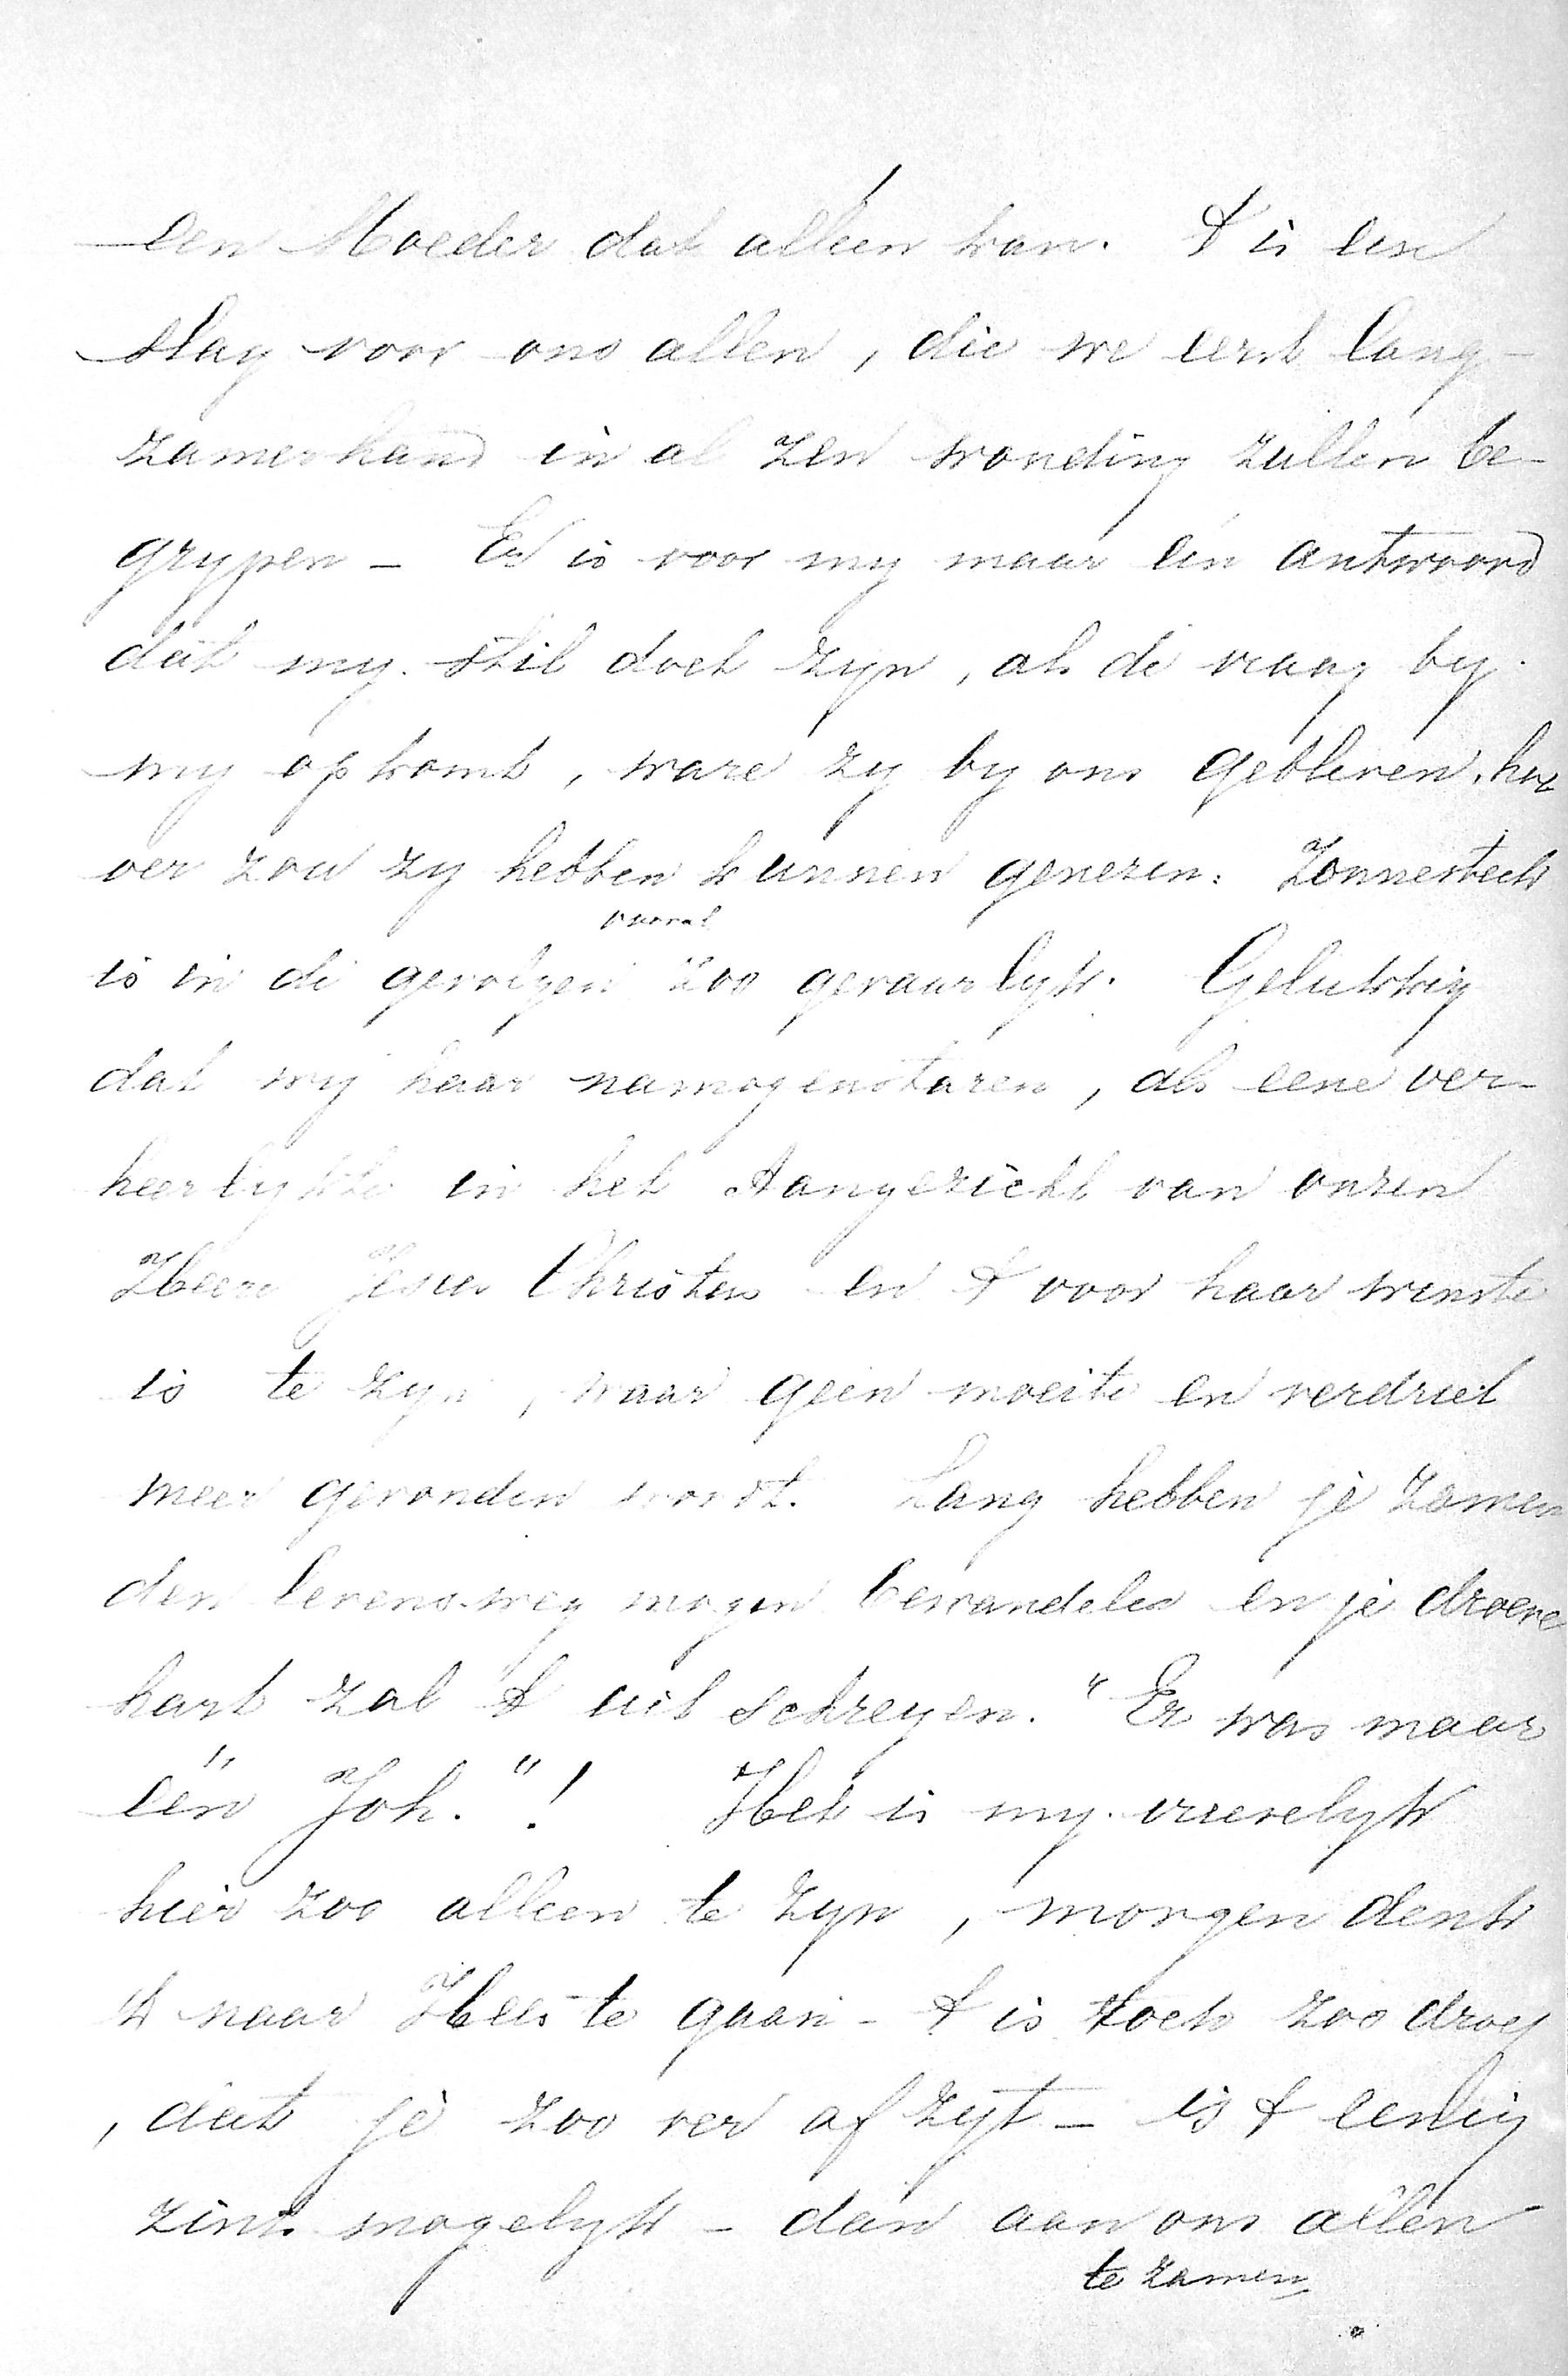 een Moeder dat alleen kan. 't is een
slag voor ons allen, die we eerst lang-
zamerhand in al zen wonding zullen be-
grypen - Er is voor my maar een antwoord
dat my stil doet zyn, als de vraag by
my op komt, ware zy by ons gebleven, hoe
ver zou zy hebben kunnen genezen: Zonnesteek
is in de gevolgen vooral zoo gevaarlyk. Gelukkig
dat wij haar namogenstaren, als eene ver-
heerlykte in het Aangezicht van onzen
Heere Jesus Christus en 't voor haar winste
is te zyn, waar geen moeite en verdriet
meer gevonden wordt. Lang hebben je zamen
den levensweg mogen bewandelen en je droeve
hart zal 't uit schreyen. "Er was maar
één Joh."! Het is my vreeselyk
hier zoo alleen te zyn, morgen denk
ik naar Hees te gaan - 't is toch zoo droef
, dat je zoo ver af zyt - is 't eenig
zins mogelyk - dan aan ons allen
te zamen